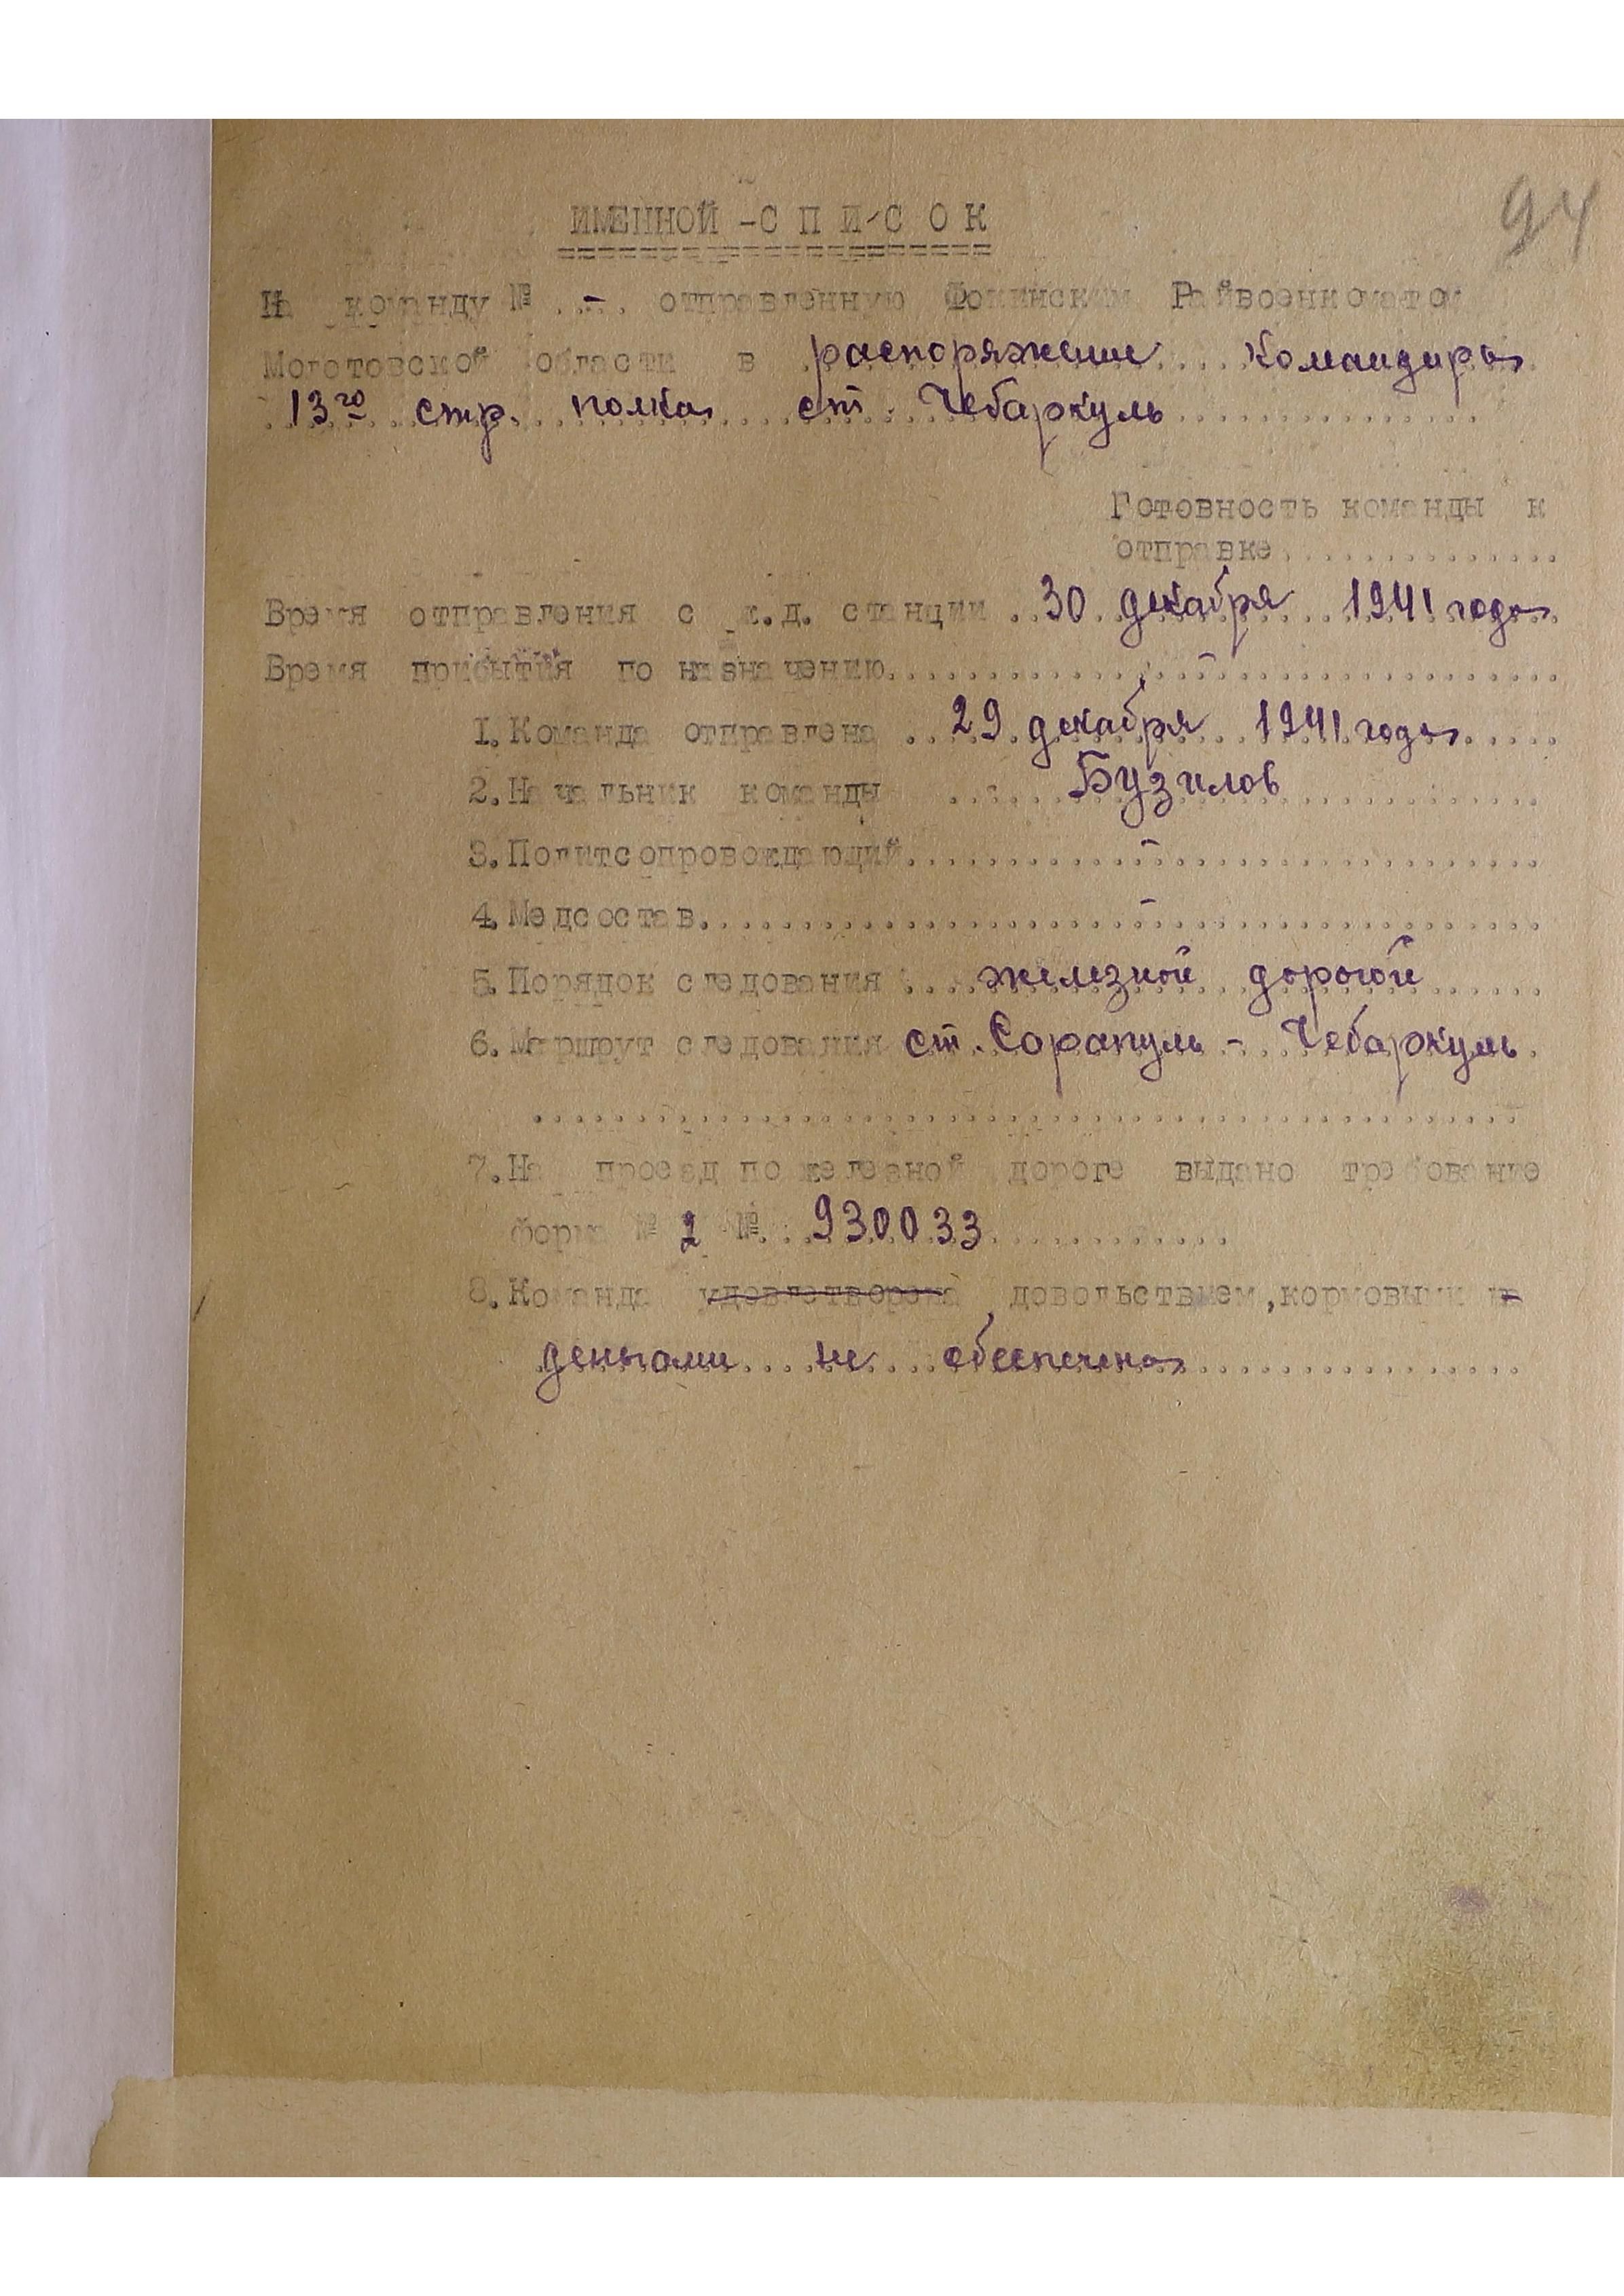 94
ИМЕННОЙ -С П И С О К
На команду № .-. отправленную Фокинским Райвоенкоматом
Молотовской области в распоряжение командира
13го стр. полка ст. Чебаркуль
Готовность команды к
отправке..............
Время отправления с ж.д. станции 30 декабря 1941 года
Время прибытия по назначению -
1. Команда отправлена 29 декабря 1941 года
2. Начальник команды Бузилов
3. Политсопровождающий -
4. Медсостав -
5. Порядок следования железной дорогой
6. Маршрут следования ст. Сарапуль - Чебаркуль.
7. На проезд по железной дороге выдано требование
форм № 2 № 930033
8. Команда удовлетворена довольствием, кормовыми и
деньгами не обеспечена